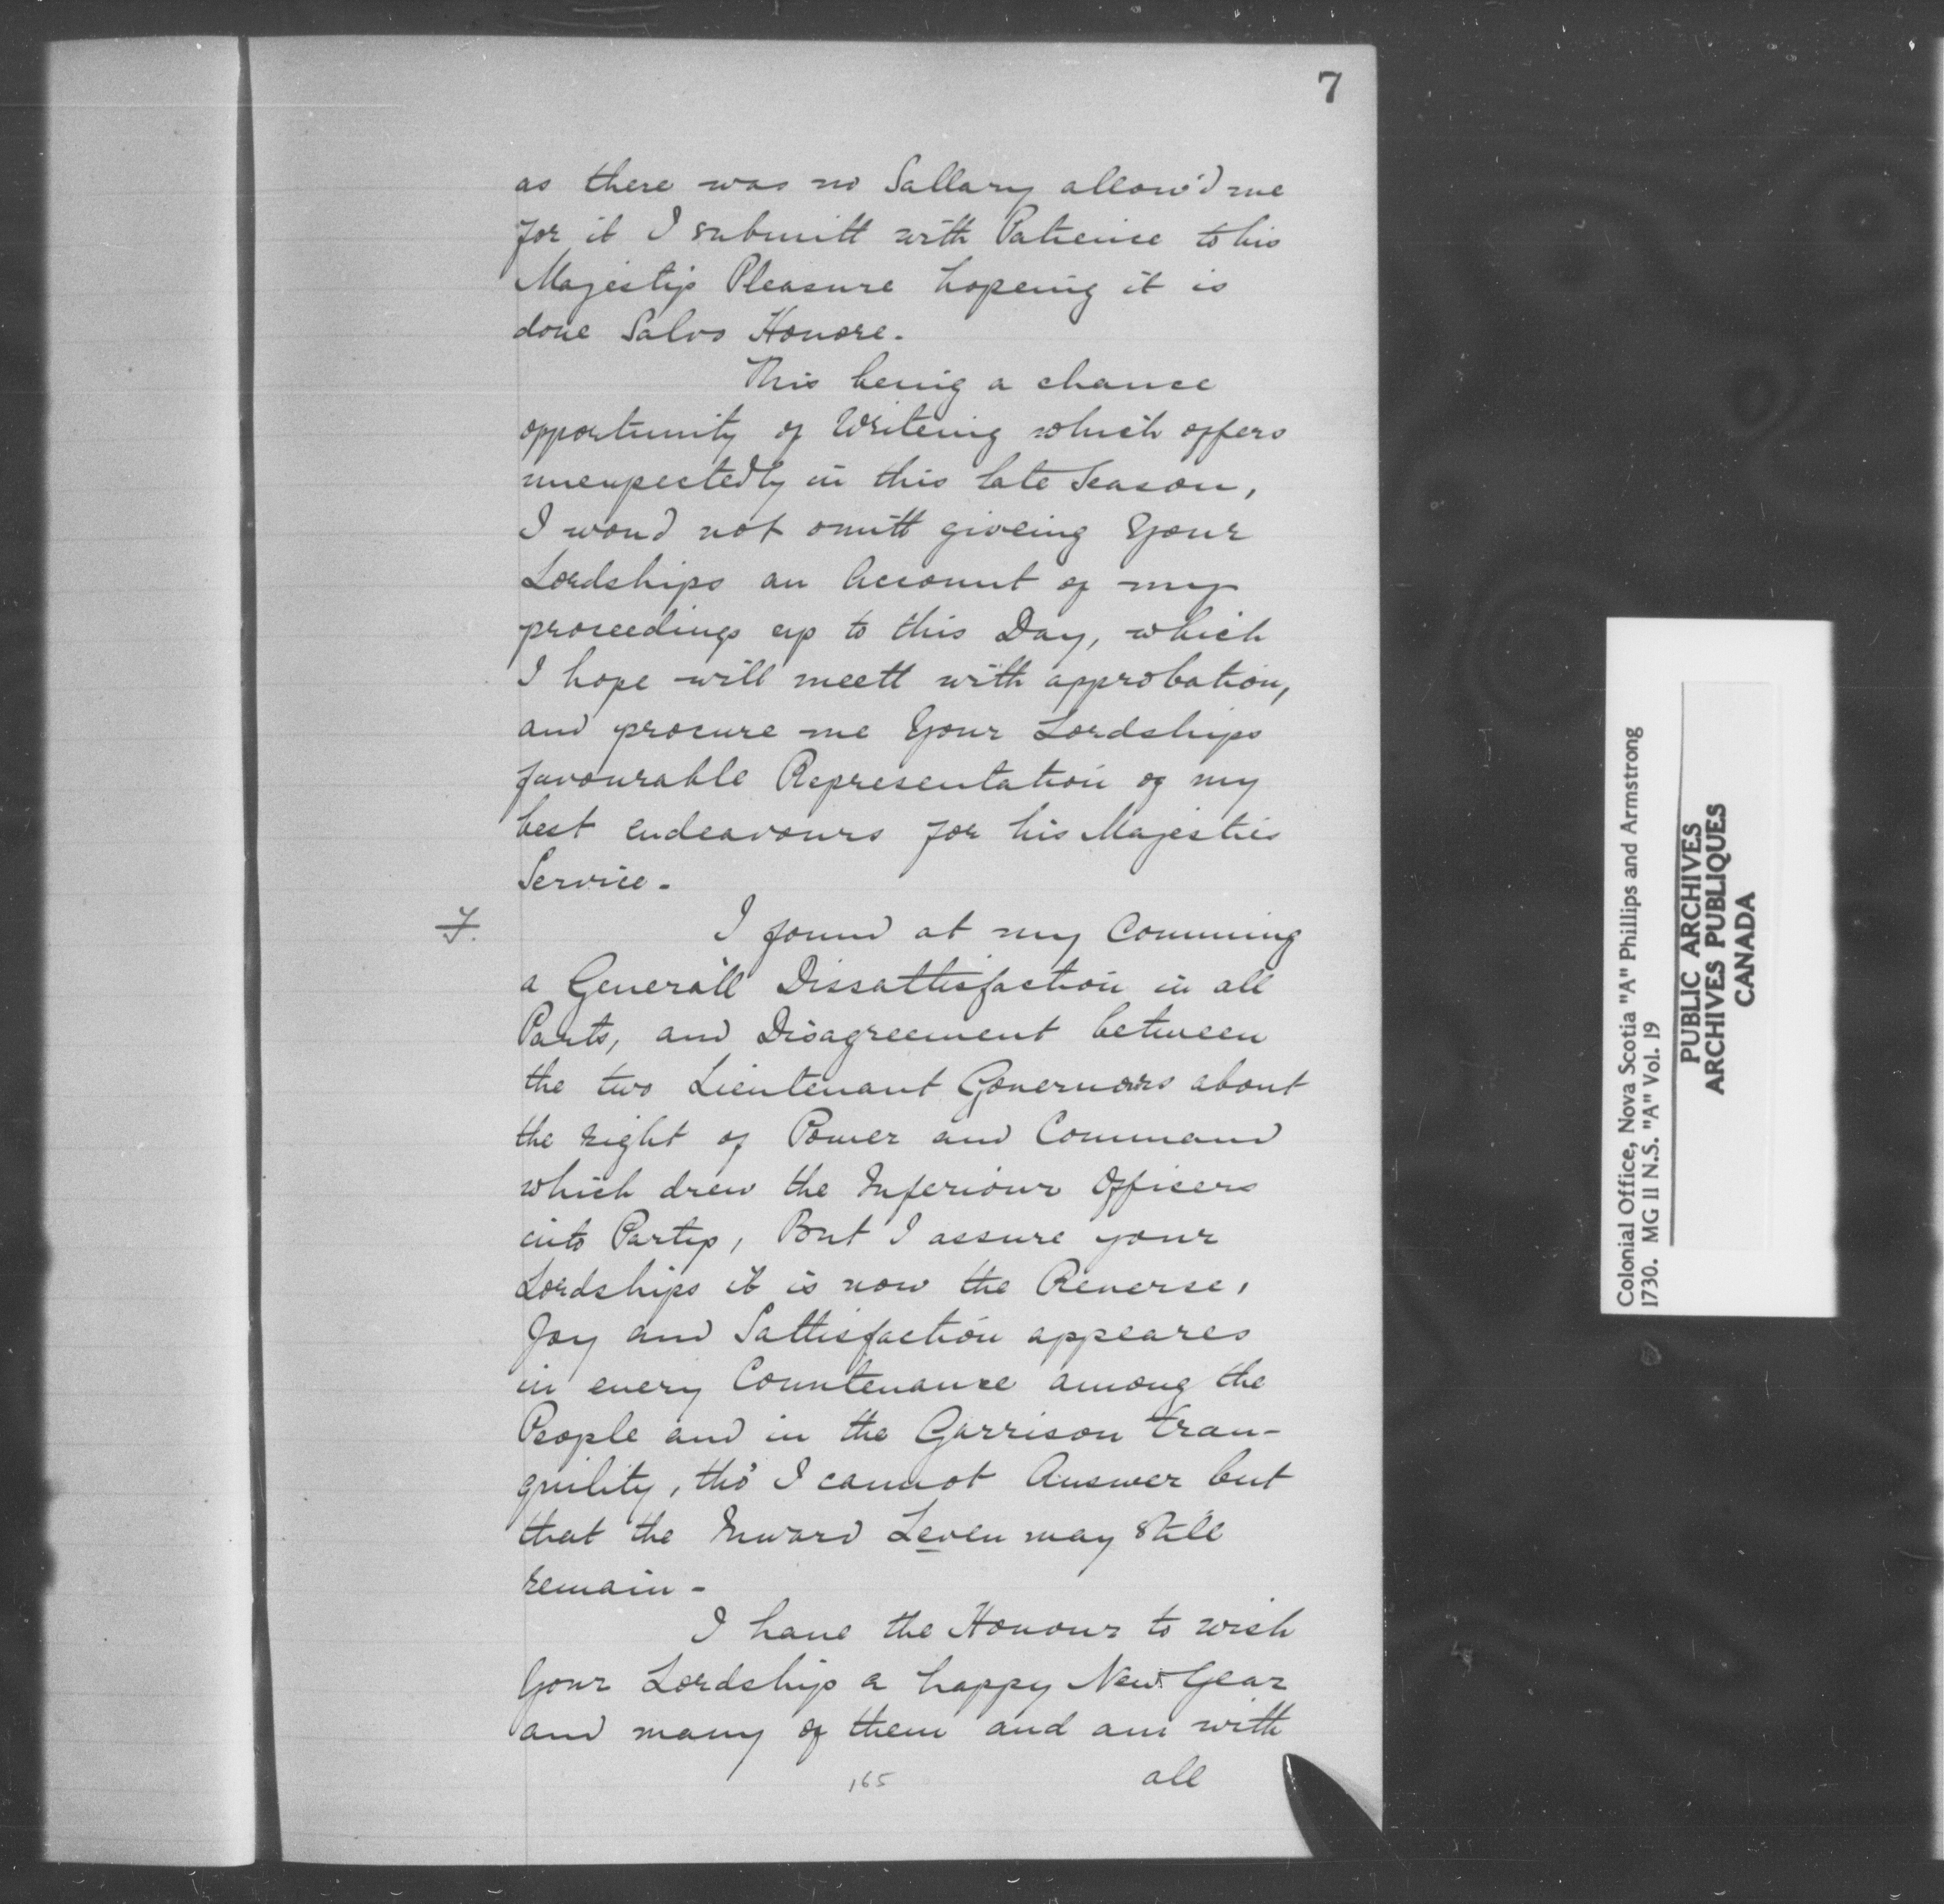 7
as there was no Sallary allow'd me
for it I submitt with Patience to his
Majestys Pleasure hopeing it is
done Salvo Honore.
This being a chance
opportunity of Writeing which offers
unexpectedly in this late Season,
I woud not omitt giveing Your
Lordships an Account of my
proceedings up to this Day, which
I hope will meett with approbation,
and procure me Your Lordships
favourable Representation of my
best endeavours for his Majesties
Service.
7.
I found at my Comming
a Generall Dissattisfaction in all
Parts, and Disagreement between
the two Lieutenant Governours about
the right of Power and Command
which drew the Inferiour Officers
into Partys, But I assure your
Lordships it is now the Reverse,
Joy and Sattisfaction appeares
in every Countenance among the
People and in the Garrison tran-
quility, tho' I cannot Answer but
that the Inward Leven may still
remain -
I have the Honour to wish
Your Lordship a happy New Year
and many of them and am with
all
165
Colonial Office, Nova Scotia "A" Phillips and Armstrong
1730. MG 11 N.S. "A" Vol. 19
PUBLIC ARCHIVES
ARCHIVES PUBLIQUES
CANADA